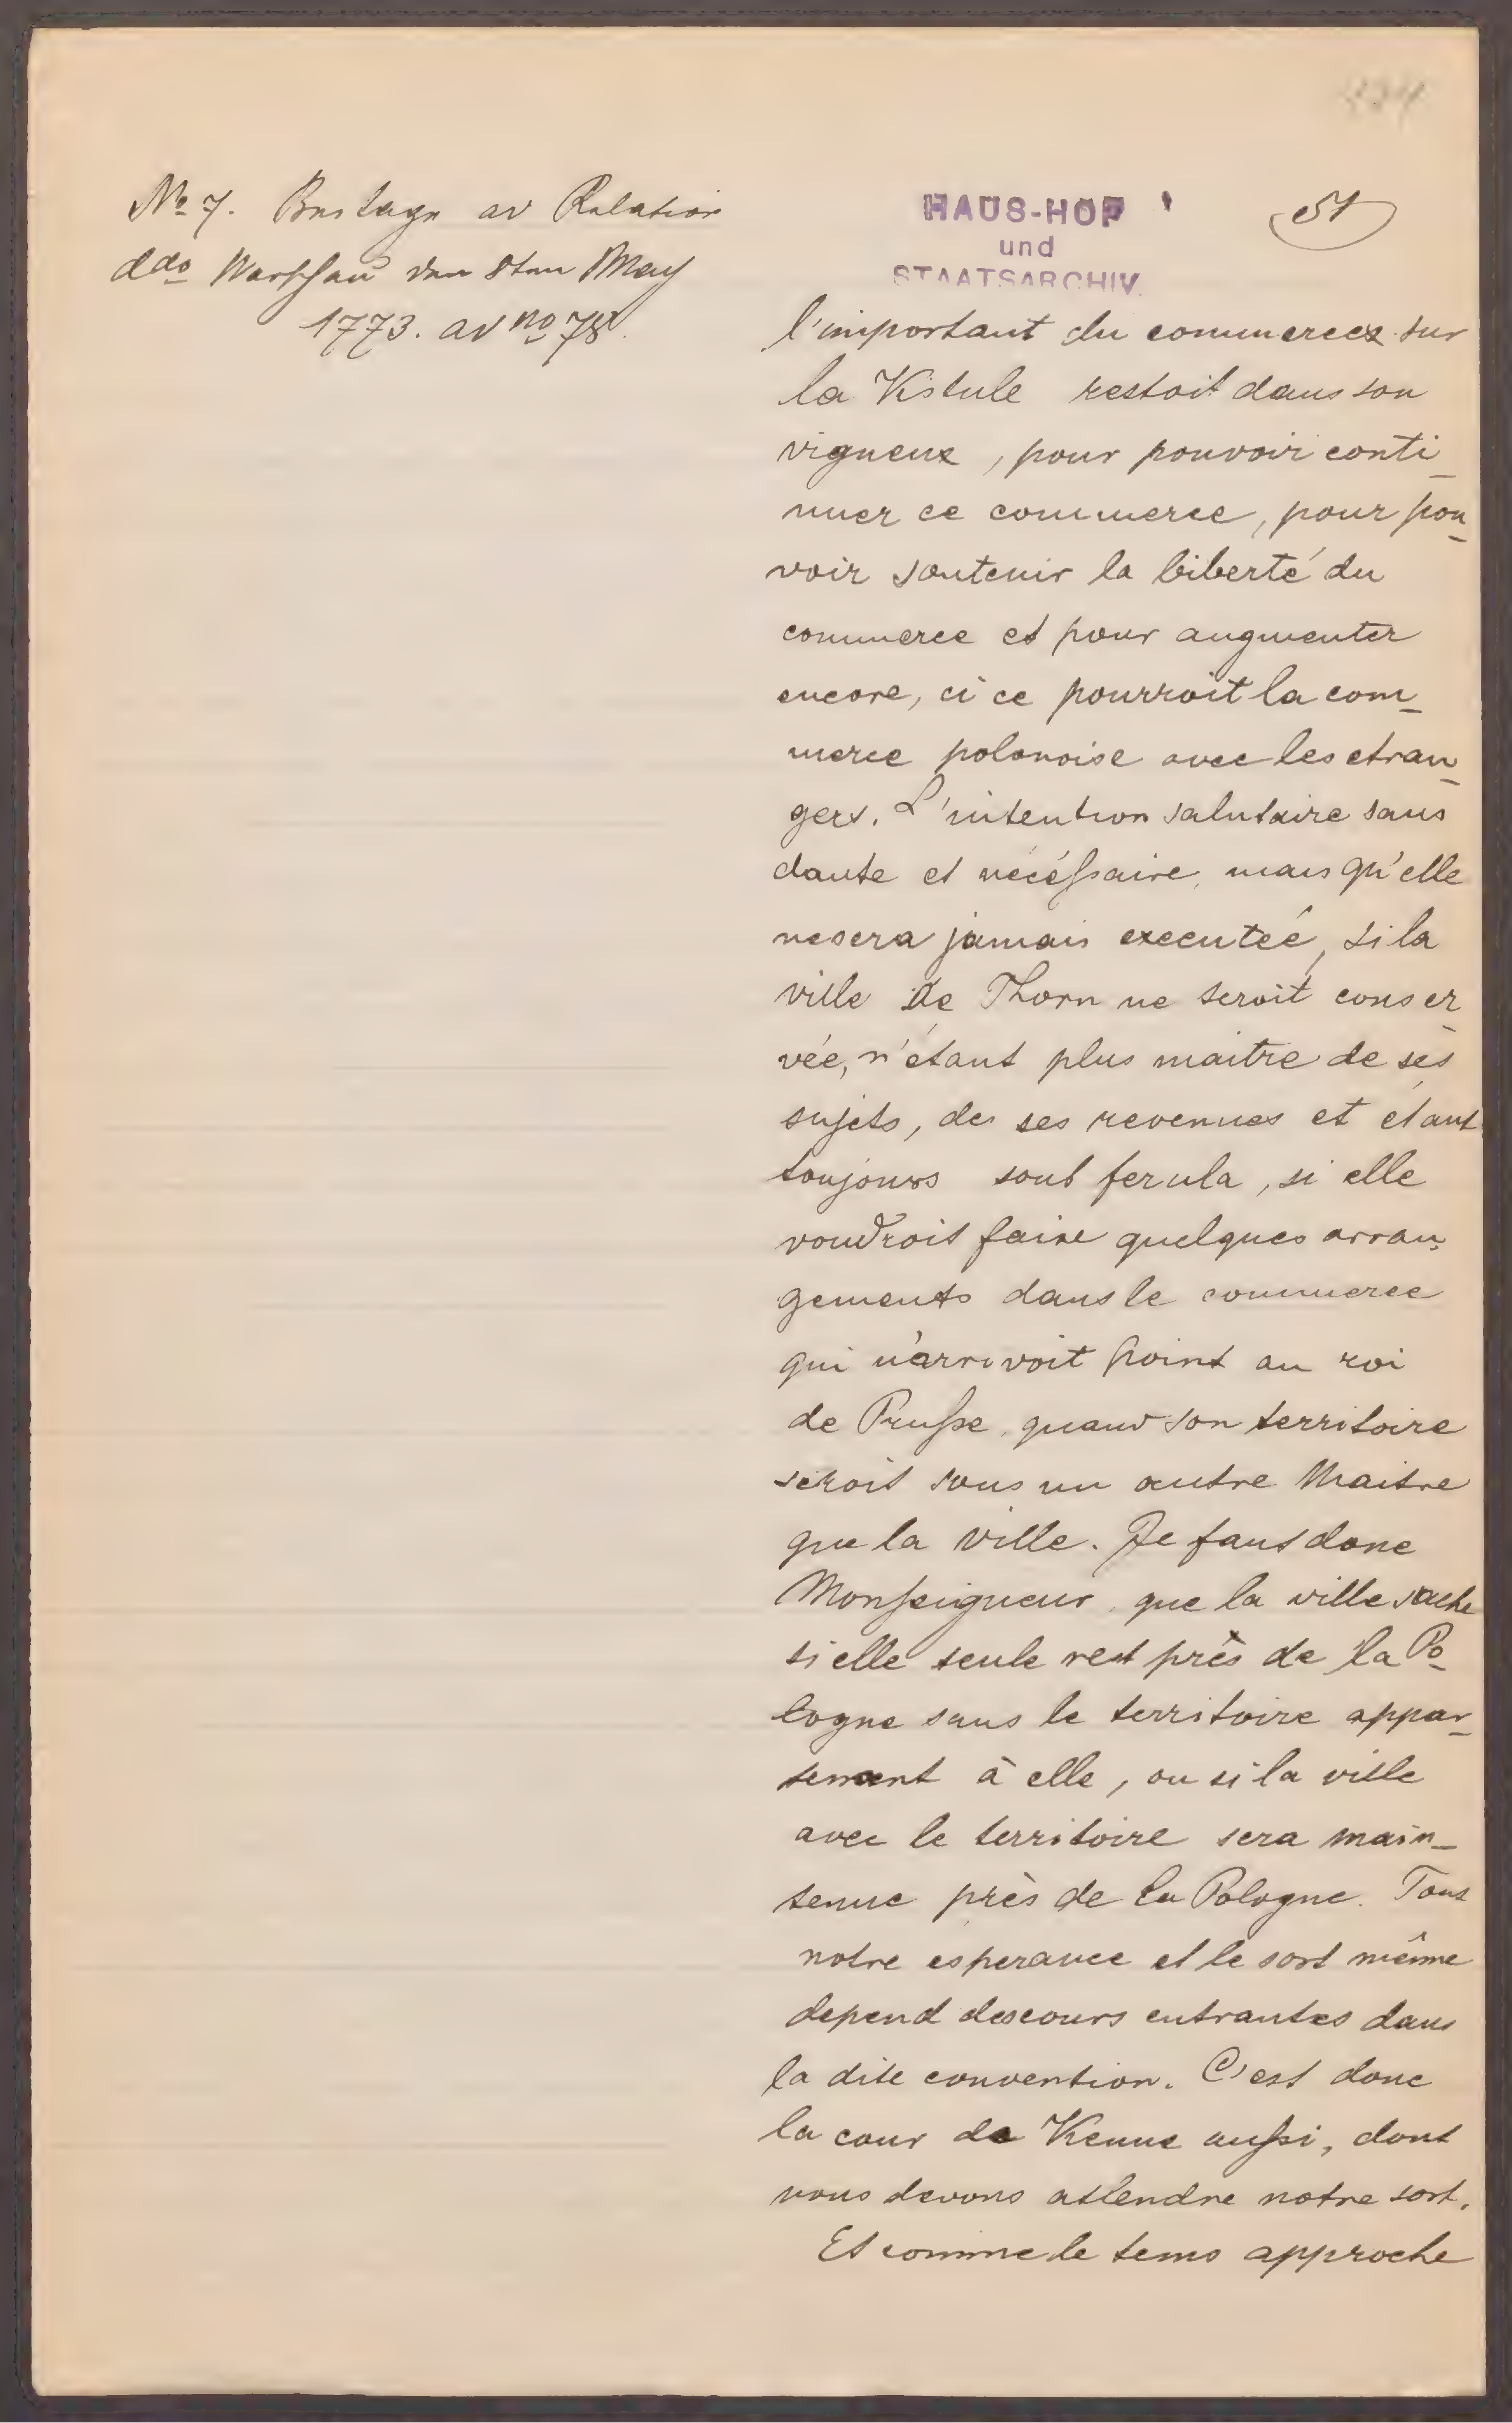 No 7. Beylage ad Relation
ddo Warschau den 8ten May
1773. ad no 78.
HAUS-HOF
und
STAATSARCHIV.
51
l'important du commerce sur
la Vistule restoit dans son
vigueur, pour pouvoir conti_
nuer ce commerce, pour pou_
voir soutenir la liberté du
commerce et pour augmenter
encore, ci ce pourroit la com_
merce polonoise avec les etran_
gers. L'intention salutaire sans
doute et nécéssaire, mais qu'elle
ne sera jamais executée, si la
ville de Thorn ne seroit conser_
vée, n'étant plus maitre de ses
sujets, de ses revenues et étant
toujours sont ferula, si elle
voudroit faire quelques arran_
gements dans le commerce
qui n'arrivoit point au roi
de Prusse, quand son territoire
seroit sous un autre Maitre
que la ville. Il faut donc
Monseigneur, que la ville sache
si elle seule rest près de la Po_
logne sans le territoire appar_
tenant à elle, ou si la ville
avec le territoire sera main_
tenue près de la Pologne. Tout
notre esperance et le sort même
depend des cours entrantes dans
la dite convention. C'est donc
la cour de Vienne aussi, dont
nous devons attendre notre sort.
Et comme le tems approche